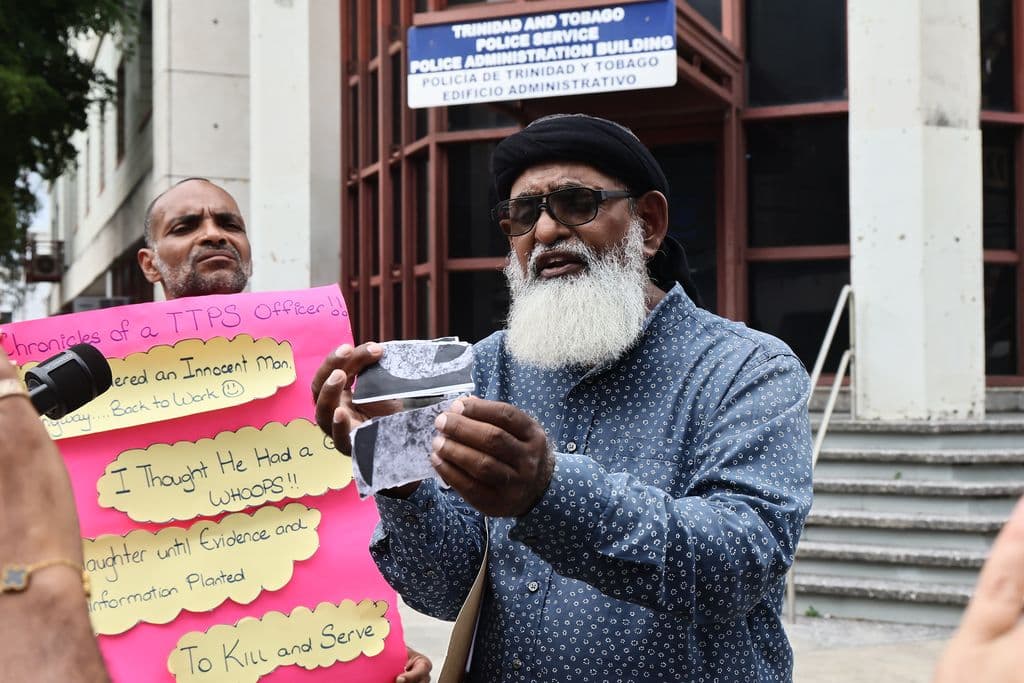 TRINIDAD AND TOBAGO
POLICE SERVICE
POLICE ADMINISTRATION BUILDING
POLICIA DE TRINIDAD Y TOBAGO
EDIFICIO ADMINISTRATIVO
Chronicles of a TTPS Officer!!
an Innocent Man.
....Back to Work ☺
I Thought He Had a
WHOOPS!!
until Evidence and
Information Planted
To Kill and Serve